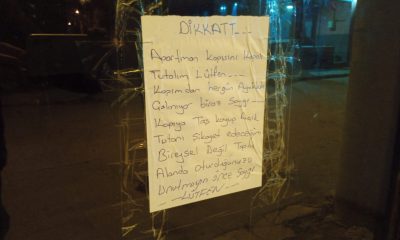 DİKKAT! ...
Apartman kapısını Kapalı
Tutalım Lütfen ...
Kapımdan hergün Ayakkabı
Çalınıyor biraz Saygı ...
Kapıya Taş koyup Açık
Tutanı şikayet edeceğim
Bireysel Değil Toplu
Alanda oturduğunuzu
Unutmayın önce Saygı
LÜTFEN ...